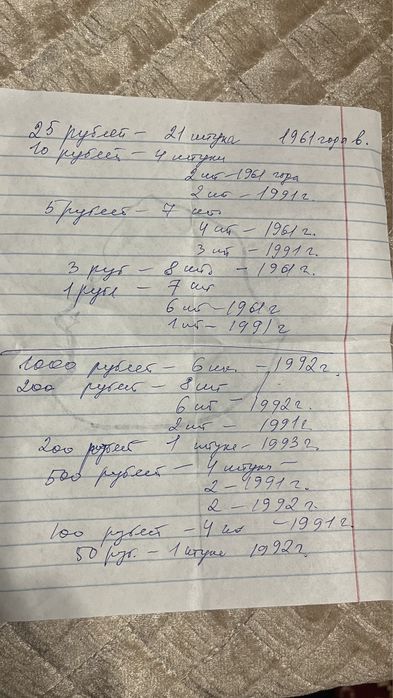 25 рублей – 21 штука 1961 года в.
10 рублей – 4 штуки
2 шт – 1961 года
2 шт – 1991 г.
5 рублей – 7 шт
4 шт – 1961 г.
3 шт – 1991 г.
3 руб – 8 шт – 1961 г.
1 рубл – 7 шт
6 шт – 1961 г
1 шт – 1991 г
1000 рублей – 6 шт. – 1992 г.
200 рублей – 8 шт
6 шт – 1992 г.
2 шт – 1991 г.
200 рублей 1 штуке – 1993 г.
500 рублей – 4 штуки –
2 – 1991 г.
2 – 1992 г.
100 рублей – 4 шт – 1991 г.
50 руб. – 1 штуке 1992 г.